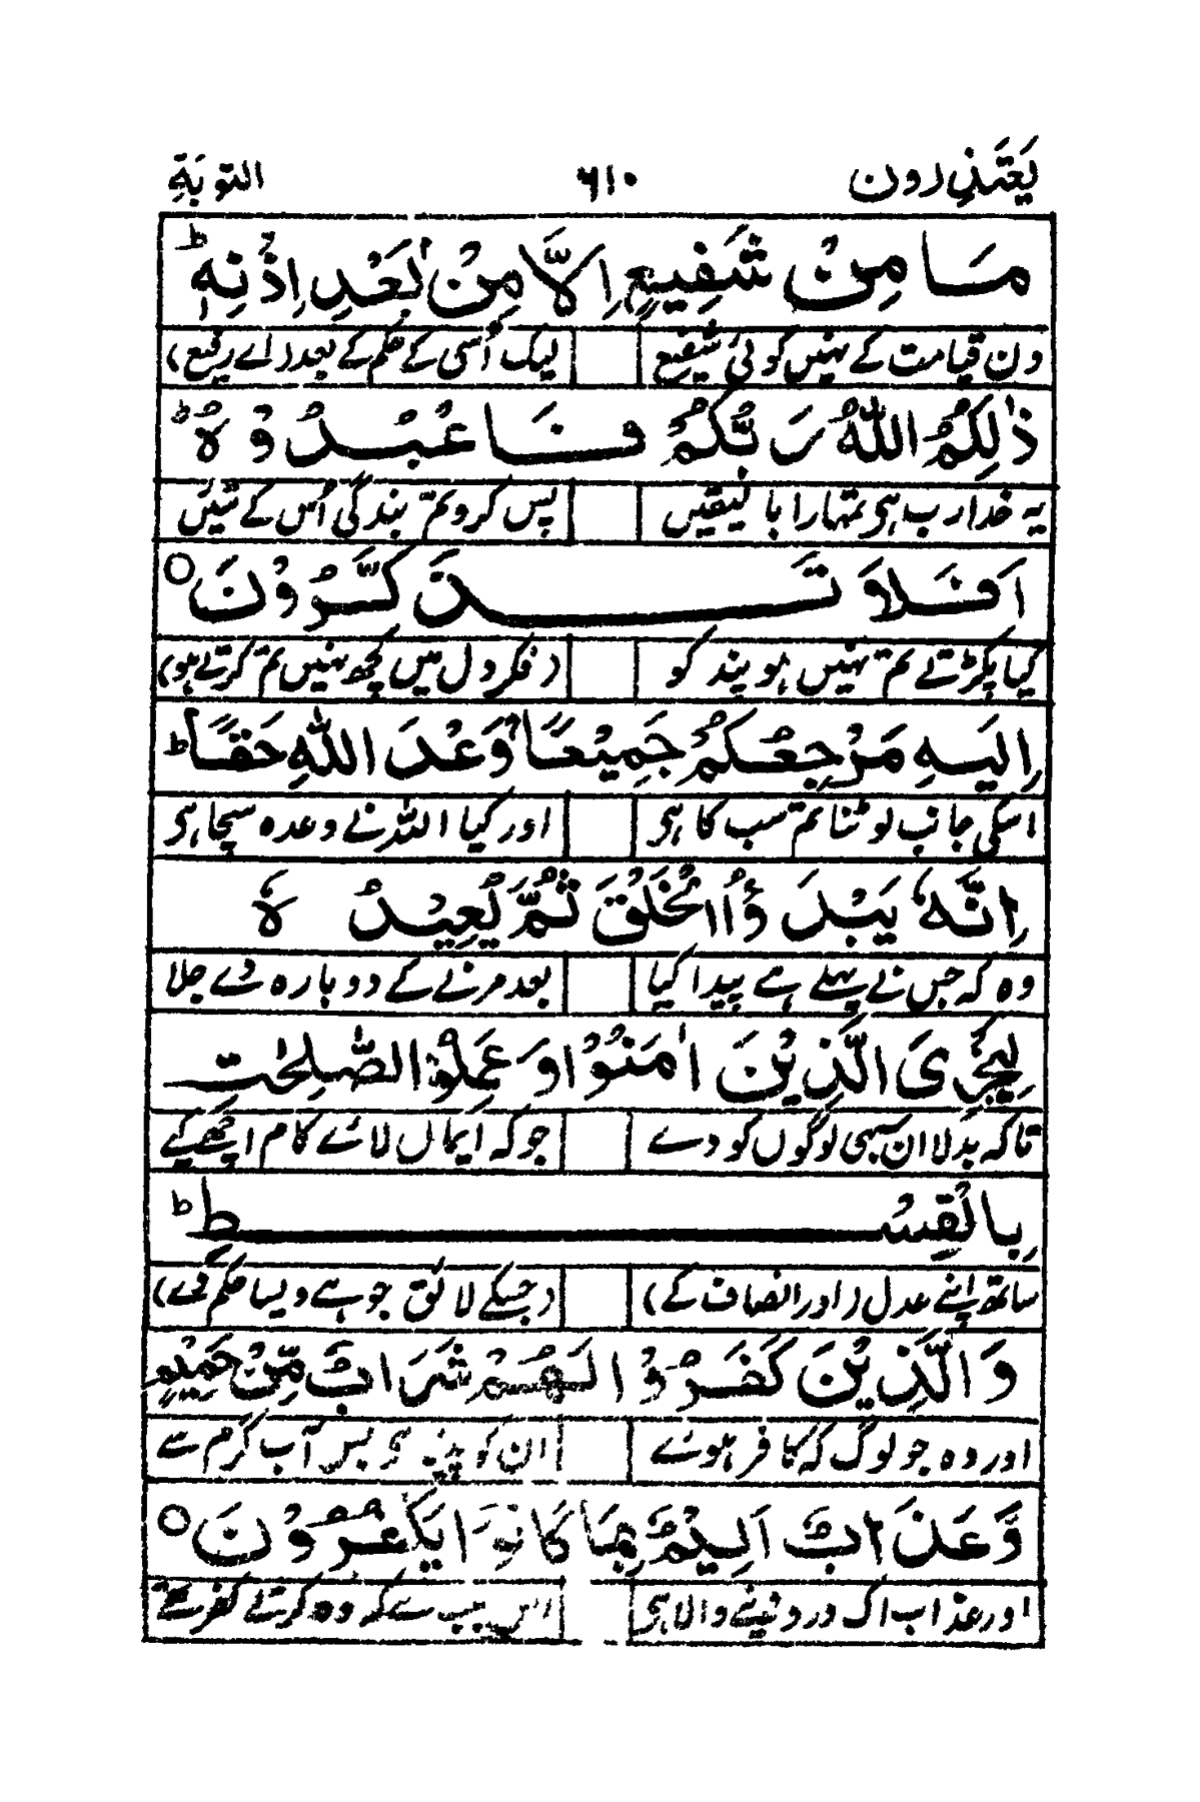 یَعْتَذِرُونَ ۶۱۰ التوبَةِ
مَا مِنْ شَفِيعٍ اِلَّا مِنْ بَعْدِ اِذْنِهٖ ط
دن قیامت کے نہیں کوئی شفیع لیک اُسی کے حکم کے بعد (اے رفیع)
ذٰلِكُمُ اللّٰهُ رَبُّكُمْ فَاعْبُدُوْهُ ط
یہ خدا رب ہی تمہارا بالیقیں پس کرو تم بندگی اُس کے تئیں
اَفَلَا تَذَكَّرُوْنَ ○
کیا پکڑتے تم نہیں ہو پند کو (فکر دل میں کچھ نہیں تم کرتے ہو)
اِلَيْهِ مَرْجِعُكُمْ جَمِيْعًا وَعْدَ اللّٰهِ حَقًّا ط
اسکی جانب لوٹنا تم سب کا ہی اور کیا اللہ نے وعدہ سچا ہی
اِنَّهٗ يَبْدَؤُا الْخَلْقَ ثُمَّ يُعِيْدُهٗ
وہ کہ جس نے پہلے ہے پیدا کیا بعد مرنے کے دوبارہ دے جلا
لِيَجْزِىَ الَّذِيْنَ اٰمَنُوْا وَعَمِلُوا الصّٰلِحٰتِ
تاکہ بدلا ان سبھی لوگوں کو دے جو کہ ایماں لائے کام اچھے کیے
بِالْقِسْطِ ط
ساتھ اپنے عدل (اور انصاف کے) (جسکے لائق جو ہے ویسا حکم دے)
وَالَّذِيْنَ كَفَرُوْا لَهُمْ شَرَابٌ مِّنْ حَمِيْمٍ
اور وہ جو لوگ کہ کافر ہوئے ان کو پینا ہی بس آب گرم سے
وَّعَذَابٌ اَلِيْمٌۢ بِمَا كَانُوْا يَكْفُرُوْنَ ○
اور عذاب اک درد دینے والا ہی اس سبب سے کہ وہ کرتے کفر تھے